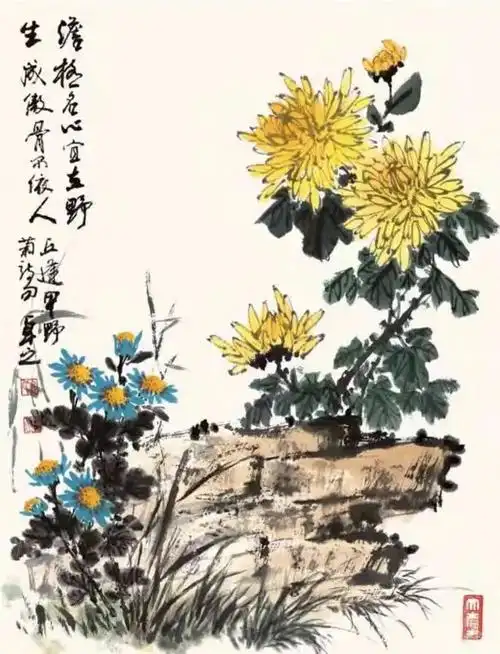 澹極名心宜在野
生成傲骨不依人
丘逢甲野
菊詩句